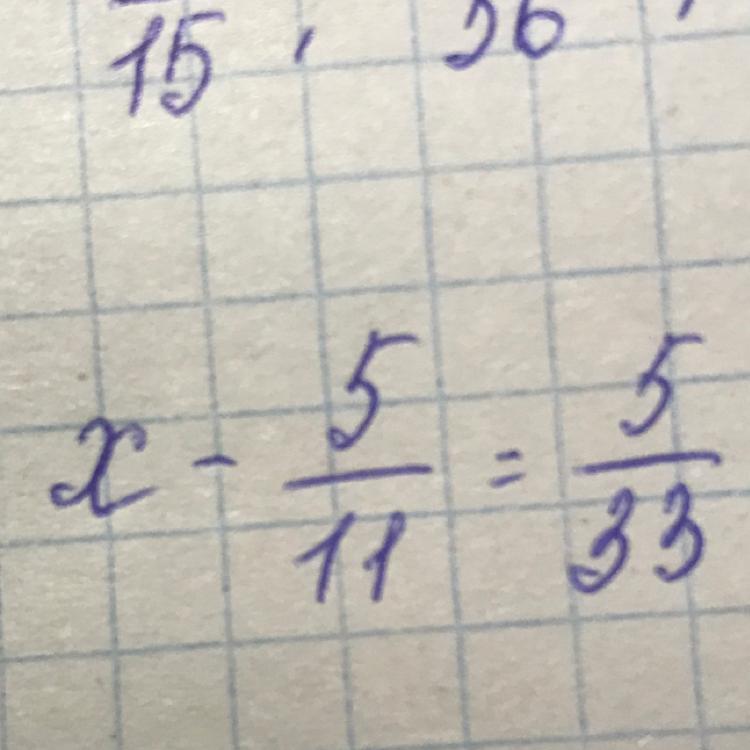 15 , 26 ,
x - 5/11 = 5/33